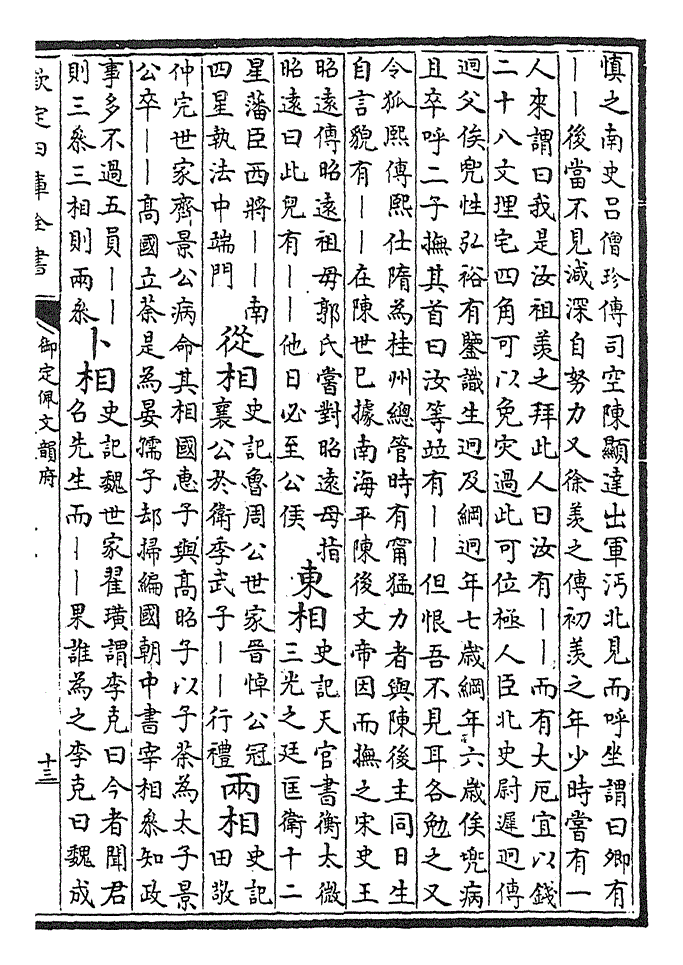 慎之南史呂僧珍傳司空陳顯達出軍沔北見而呼坐謂曰卿有
——後當不見減深自努力又徐羨之傳初羨之年少時嘗有一
人來謂曰我是汝祖羨之拜此人曰汝有——而有大厄宜以錢
二十八文理宅四角可以免灾過此可位極人臣北史尉遲迥傳
迥父俟兜性弘裕有鑒識生迥及綱迥年七歲綱年六歲俟兜病
且卒呼二子撫其首曰汝等竝有——但恨吾不見耳各勉之又
令狐熙傳熙仕隋為桂州總管時有甯猛力者與陳後主同日生
自言貌有——在陳世已據南海平陳後文帝因而撫之宋史王
昭遠傳昭遠祖母郭氏嘗對昭遠母指
昭遠曰此兒有——他日必至公侯
東相
史記天官書衡太微
三光之廷匡衛十二
星藩臣西將——南
四星執法中端門
從相
史記魯周公世家晉悼公冠
襄公於衛季武子——行禮
兩相
史記
田敬
仲完世家齊景公病命其相國惠子與高昭子以子荼為太子景
公卒——高國立荼是為晏孺子却掃編國朝中書宰相叅知政
事多不過五員——
則三叅三相則兩叅
卜相
史記魏世家翟璜謂李克曰今者聞君
召先生而——果誰為之李克曰魏成
欽定四庫全書
御定佩文韻府
十三